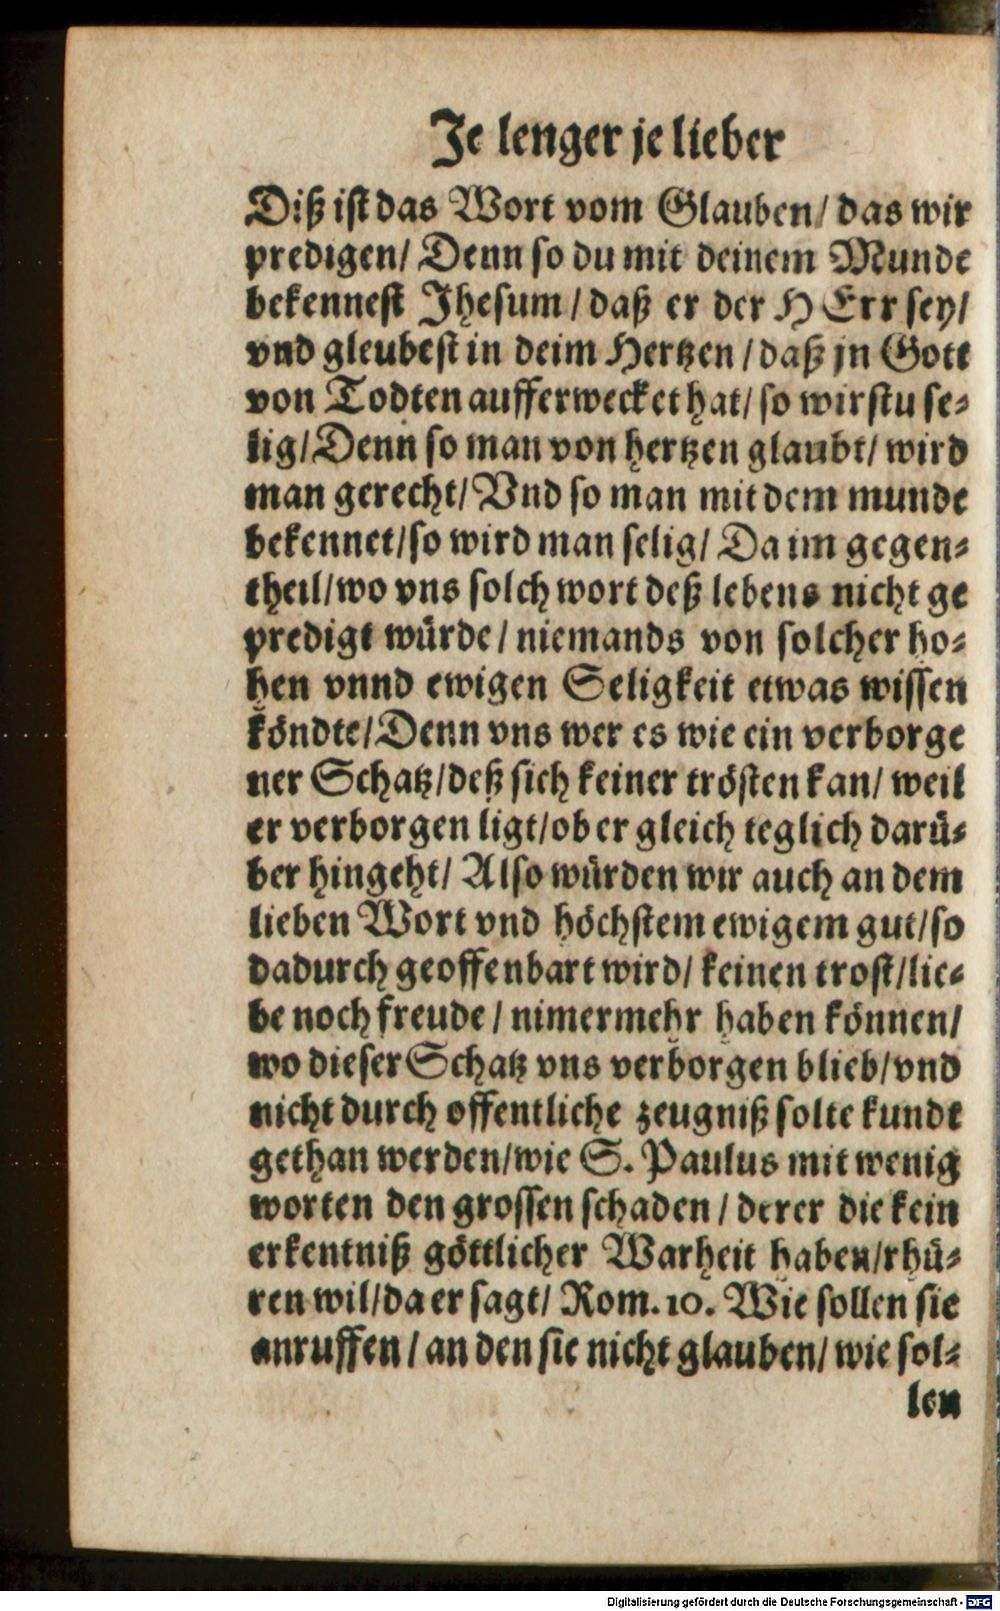 Je lenger je lieber
Diß ist das Wort vom Glauben/ das wir
predigen/ Denn so du mit deinem Munde
bekennest Jhesum / daß er der HErr sey/
vnd gleubest in deim Hertzen / daß jn Gott
von Todten aufferwecket hat/ so wirstu se-
lig/ Denn so man von hertzen glaubt/ wird
man gerecht/ Vnd so man mit dem munde
bekennet/ so wird man selig/ Da im gegen-
theil/ wo vns solch wort deß lebens nicht ge
predigt würde / niemands von solcher ho-
hen vnnd ewigen Seligkeit etwas wissen
köndte/ Denn vns wer es wie ein verborge
ner Schatz/ deß sich keiner trösten kan/ weil
er verborgen ligt/ ob er gleich teglich darü-
ber hingeht/ Also würden wir auch an dem
lieben Wort vnd höchstem ewigem gut/ so
dadurch geoffenbart wird/ keinen trost/ lie-
be noch freude / nimermehr haben können/
wo dieser Schatz vns verborgen blieb/ vnd
nicht durch offentliche zeugniß solte kundt
gethan werden/ wie S. Paulus mit wenig
worten den grossen schaden / derer die kein
erkentniß göttlicher Warheit haben/ rhü-
ren wil/ da er sagt/ Rom. 10. Wie sollen sie
anruffen / an den sie nicht glauben/ wie sol-
len
Digitalisierung gefördert durch die Deutsche Forschungsgemeinschaft - DFG